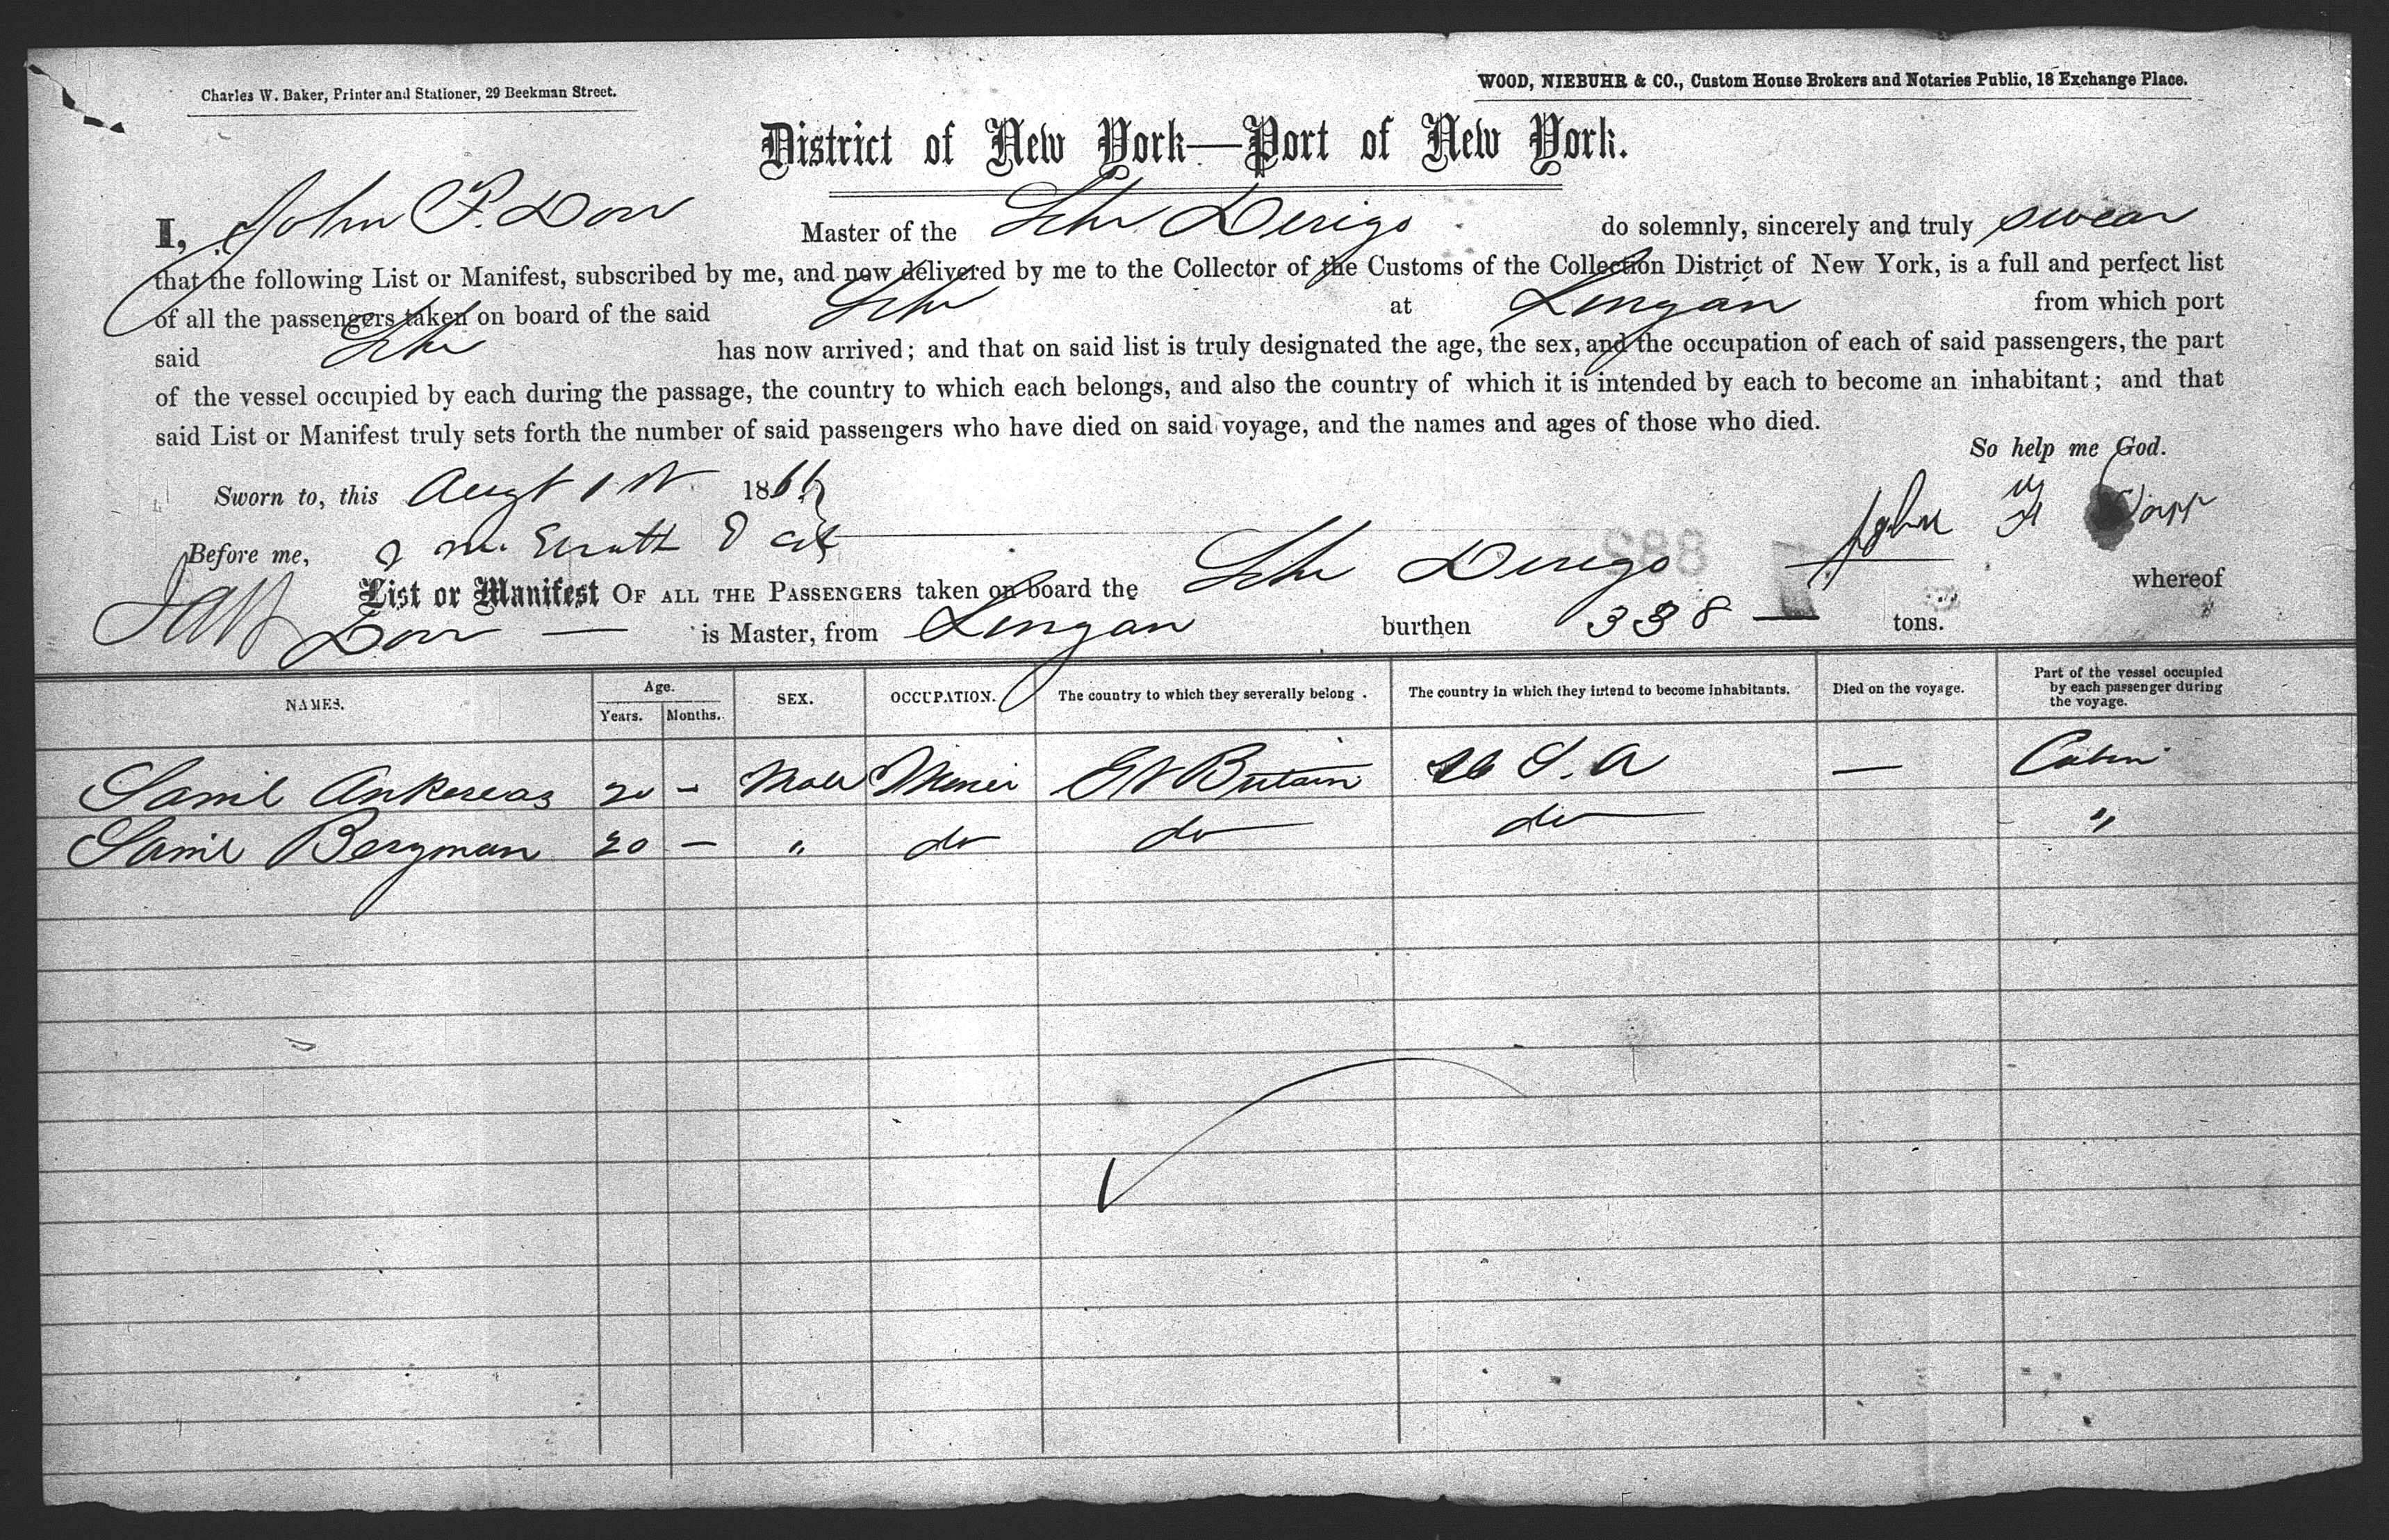 Charles W. Baker, Printer and Stationer, 29 Beekman Street.
WOOD, NIEBUHR & CO., Custom House Brokers and Notaries Public, 18 Exchange Place.
District of New York—Port of New York.
I, John P. Dorr Master of the Schr Derigo do solemnly, sincerely and truly swear
that the following List or Manifest, subscribed by me, and now delivered by me to the Collector of the Customs of the Collection District of New York, is a full and perfect list
of all the passengers taken on board of the said Schr at Lingan from which port
said Schr has now arrived; and that on said list is truly designated the age, the sex, and the occupation of each of said passengers, the part
of the vessel occupied by each during the passage, the country to which each belongs, and also the country of which it is intended by each to become an inhabitant; and that
said List or Manifest truly sets forth the number of said passengers who have died on said voyage, and the names and ages of those who died.
So help me God.
Sworn to, this Augt 1st 186
John
Before me,
List or Manifest OF ALL THE PASSENGERS taken on board the Schr Derigo whereof
Dorr — is Master, from Lingan burthen 338 — tons.
NAMES. Age. Years. Months. SEX. OCCUPATION. The country to which they severally belong. The country in which they intend to become inhabitants. Died on the voyage. Part of the vessel occupied by each passenger during the voyage.
Saml Ankereas 20 - Male Miner Gt Britain U S. A — Cabin
Saml Bergman 20 — " do do do "